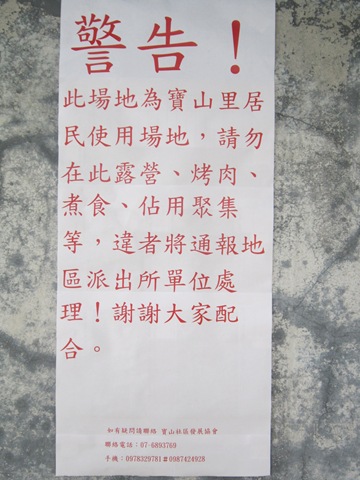 警告！
此場地為寶山里居
民使用場地，請勿
在此露營、烤肉、
煮食、佔用聚集
等，違者將通報地
區派出所單位處
理！謝謝大家配
合。
如有疑問請聯絡 寶山社區發展協會
聯絡電話：07-6893769
手機：0978329781#0987424928